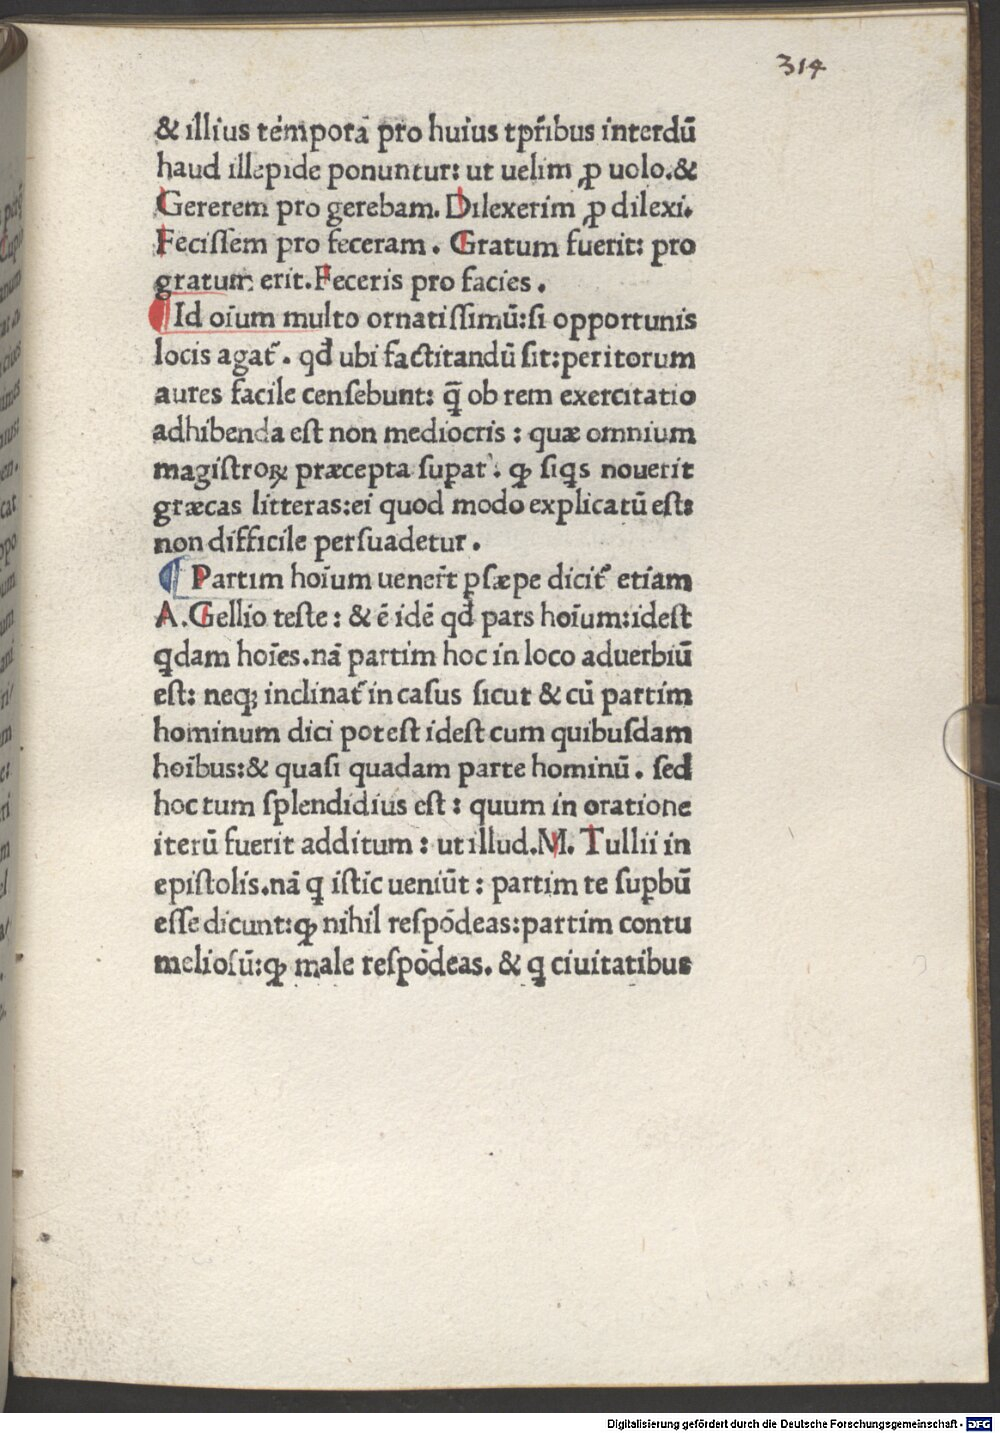 314
& illius témpora᷄ pro huius tp̄ribus interdū
haud illepide ponuntur: ut uelim ꝓ uolo. &
Gererem pro gerebam. Dilexerim ꝓ dilexi.
Feciſſem pro feceram. Gratum fuerit: pro
gratum erit. Feceris pro facies.
¶ Id oīum multo ornatiſſimū: ſi opportunis
locis agat᷑. qđ ubi factitandū ſit: peritorum
aures facile cenſebunt: q̄ ob rem exercitatio
adhibenda eſt non mediocris: quæ omnium
magiſtroꝝ præcepta ſuꝑat᷑. ꝙ ſiqs nouerit
græcas litteras: ei quod modo explicatū eſt:
non difficile perſuadetur.
¶ Partim hoīum uener̄t ꝑſæpe dicit᷑ etiam
A. Gellio teſte: & ē idē qđ pars hoīum: ideſt
qdam hoīes. nā partim hoc in loco aduerbiū
eſt: neqꝫ inclinat᷑ in caſus ſicut & cū partim
hominum dici poteſt ideſt cum quibuſdam
hoībus: & quaſi quadam parte hominū. ſed
hoc tum ſplendidius eſt: quum in oratione
iterū fuerit additum: ut illud. M. Tullii in
epiſtolis. nā q iſtic ueniūt: partim te ſuꝑbū
eſſe dicunt: ꝙ nihil reſpōdeas: partim contu
melioſū: ꝙ male reſpōdeas. & q ciuitatibus
Digitalisierung gefördert durch die Deutsche Forschungsgemeinschaft - DFG